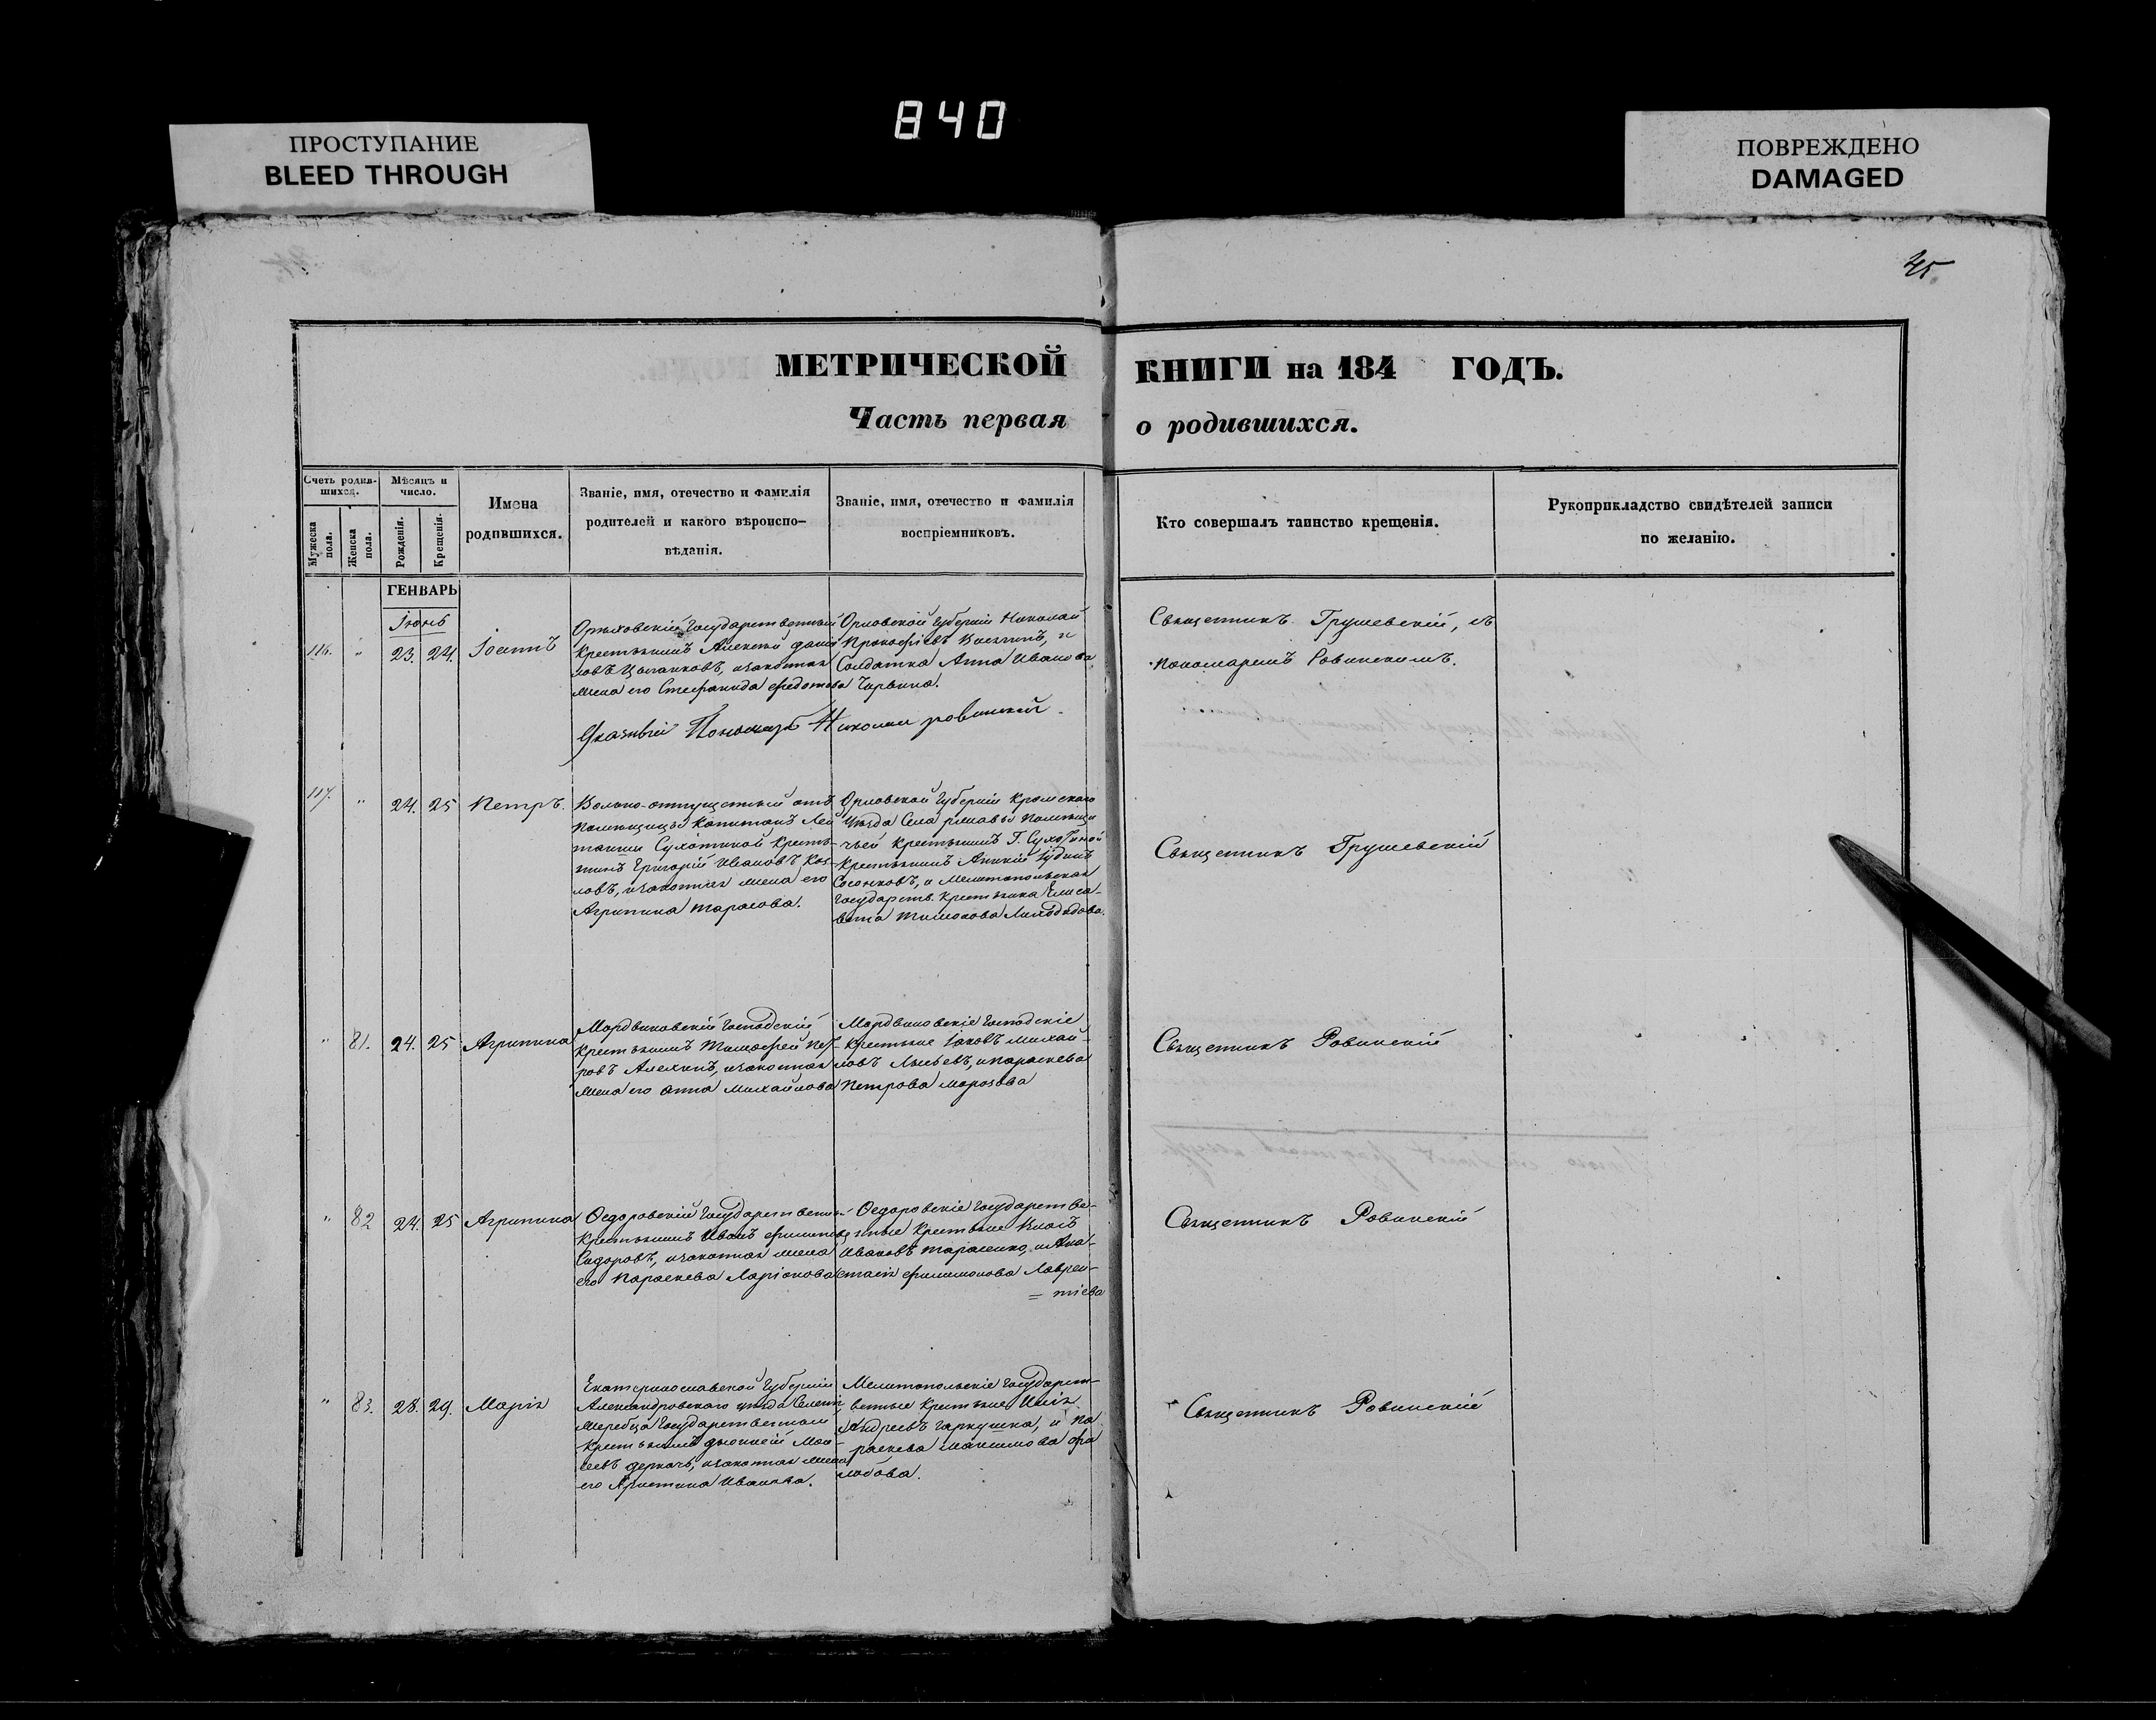 840
ПРОСТУПАНИЕ
BLEED THROUGH
ПОВРЕЖДЕНО
DAMAGED
45
МЕТРИЧЕСКОЙ КНИГИ на 184 ГОДЪ.
Часть первая о родившихся.
Счетъ родив-
шихся.
Мужеска пола.
Женска пола.
Мѣсяцъ и
число.
Рожденія.
Крещенія.
Имена
родившихся.
Званіе, имя, отечество и фамилія
родителей и какого вѣроиспо-
вѣданія.
Званіе, имя, отечество и фамилія
воспріемниковъ.
Кто совершалъ таинство крещенія.
Рукоприкладство свидѣтелей записи
по желанію.
ГЕНВАРЬ
Іюнь
116. " 23. 24. Іоаннъ
Орѣховскій Государственный
крестьянинъ Алексѣй Дани
ловъ Цыганковъ, и законная
жена его Стефанида Федотова
Орловской Губерніи Николай
Прокофіевъ, и
Солдатка Анна Иванова
Священникъ Грушевскій, съ
пономаремъ Ровинскимъ.
Указный Пономарь Николай Ровинскій
117. " 24. 25 Петръ.
Вольно-отпущенный отъ
помѣщицы Капитанъ Лей
танши Сухотиной кресть-
янинъ Григорій Ивановъ Коз-
ловъ, и законная жена его
Агрипина Тарасова.
Орловской Губерніи Кромскаго
уѣзда Села помѣщи
чьей крестьянинъ Г. Сухотиной
крестьянинъ
и Мелитопольская
Государств. крестьянка Елиса-
вета
Священникъ Грушевскій
" 81. 24. 25 Агрипина
Мордвиновскій Господскій
крестьянинъ Тимофей Пет-
ровъ Алехинъ, и законная
жена его Анна Михайлова
Мордвиновскіе Господскіе
крестьяне Іаковъ Михай-
ловъ и Параскева
Петрова Морозова
Священникъ Ровинскій
" 82 24. 25 Агрипина
Ѳедоровскій Государственный
крестьянинъ Иванъ
Сидоровъ, и законная жена
его Параскева Ларіонова
Ѳедоровскіе Государстве-
нные крестьяне Власъ
Ивановъ Тарасенко, и Ана-
стасія Филимонова Лаврен-
= тіева
Священникъ Ровинскій
" 83. 28. 29. Марія
Екатеринославской Губерніи
Александровскаго уѣзда Селенія
Жеребца Государственной
крестьянинъ Діонисій Мои-
сеевъ Деркачь, и законная жена
его Христина Иванова.
Мелитопольскіе Государст-
венные крестьяне Илія
Андреевъ Гаркушка, и Па
раскева Максимова
Священникъ Ровинскій